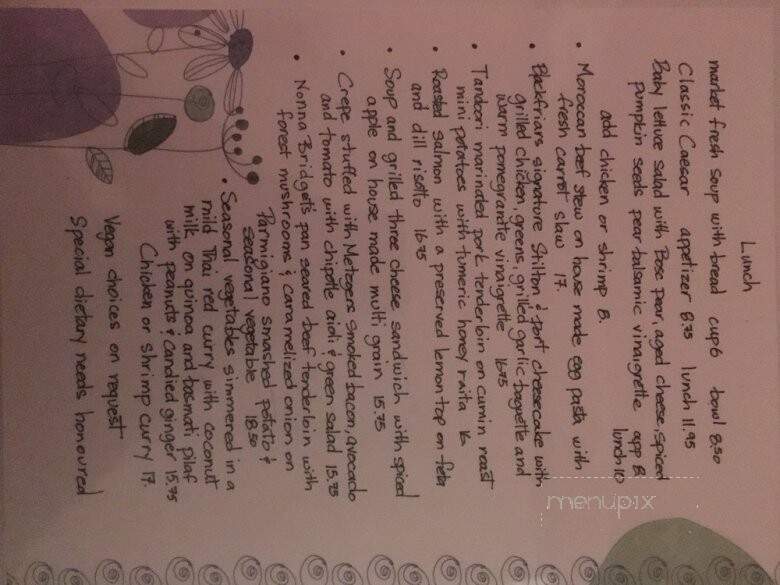 Lunch
market fresh soup with bread cup 6 bowl 8.50
Classic Caesar appetizer 8.75 lunch 11.95
Baby lettuce salad with Bosc pear, aged cheese, spiced
pumpkin seeds pear balsamic vinaigrette app 8.
lunch 10
add chicken or shrimp 8.
• Moroccan beef stew on house made egg pasta with
fresh carrot slaw 17.
• Blackfriars signature Stilton & port cheesecake with
grilled chicken, greens, grilled garlic baguette and
warm pomegranate vinaigrette 16.75
• Tandoori marinated pork tenderloin on cumin roast
mini potatoes with tumeric honey raita 16
• Roasted salmon with a preserved lemon top on feta
and dill risotto 16.75
• Soup and grilled three cheese sandwich with spiced
apple on house made multi grain 15.75
• Crepe stuffed with Metzgers smoked bacon, avocado
and tomato with chipotle aioli & green salad 15.75
• Nonna Bridget's pan seared beef tenderloin with
forest mushrooms & caramelized onion on
Parmigiano smashed potato &
seasonal vegetable 18.50
• Seasonal vegetables simmered in a
mild Thai red curry with coconut
milk on quinoa and basmati pilaf
with peanuts & candied ginger 15.75
Chicken or shrimp curry 17.
Vegan choices on request
Special dietary needs honoured
menupix